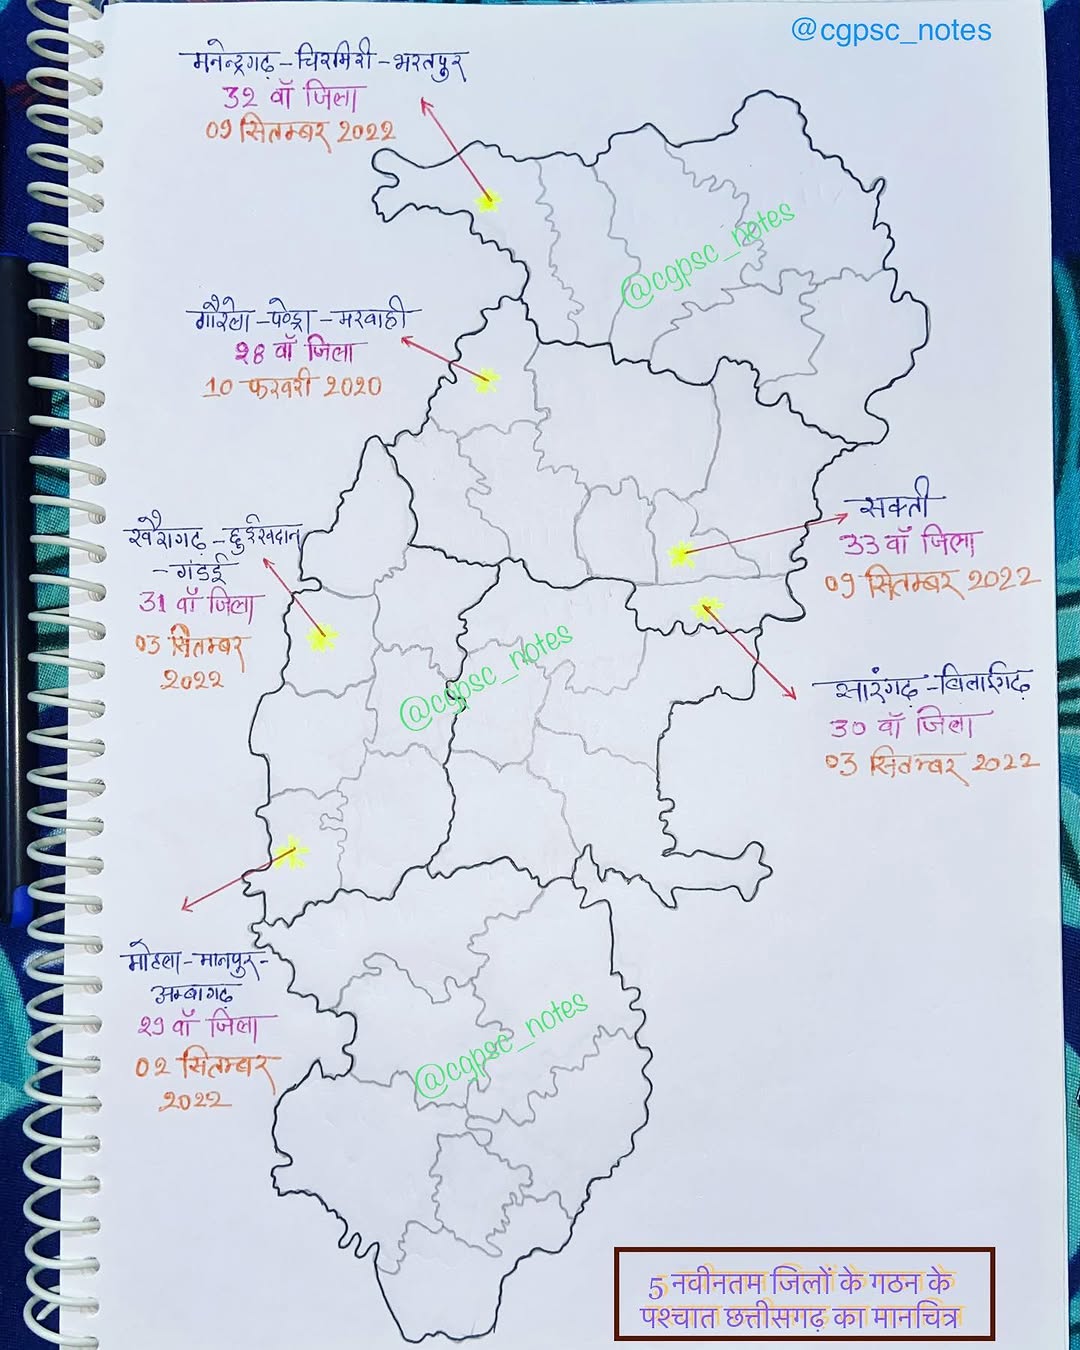 @cgpsc_notes
मनेन्द्रगढ़ - चिरमिरी - भरतपुर
32 वाँ जिला
09 सितम्बर 2022
@cgpsc_notes
गौरेला - पेण्ड्रा - मरवाही
28 वाँ जिला
10 फरवरी 2020
सक्ती
33 वाँ जिला
09 सितम्बर 2022
खैरागढ़ - छुईखदान
- गंडई
31 वाँ जिला
03 सितम्बर
2022
@cgpsc_notes
सारंगढ़ - बिलाईगढ़
30 वाँ जिला
03 सितम्बर 2022
मोहला - मानपुर -
अम्बागढ़
29 वाँ जिला
02 सितम्बर
2022
@cgpsc_notes
5 नवीनतम जिलों के गठन के
पश्चात छत्तीसगढ़ का मानचित्र